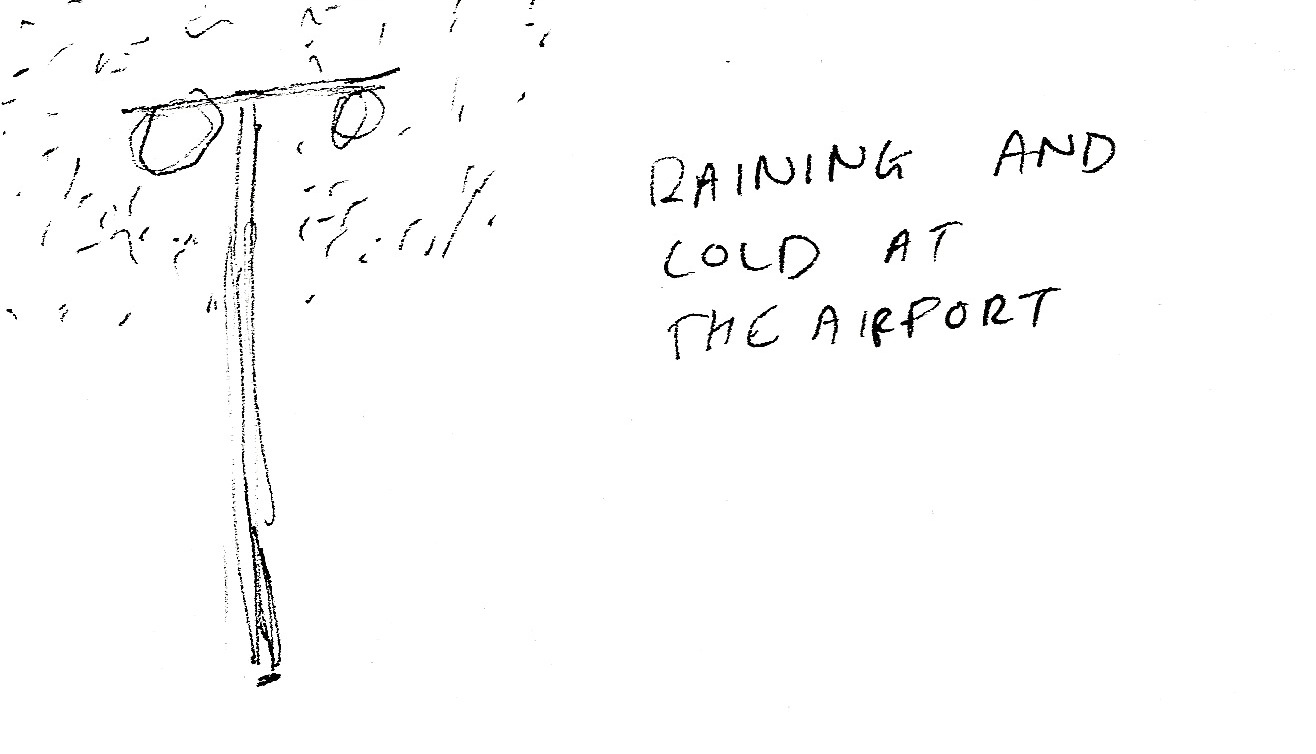 RAINING AND
COLD AT
THE AIRPORT